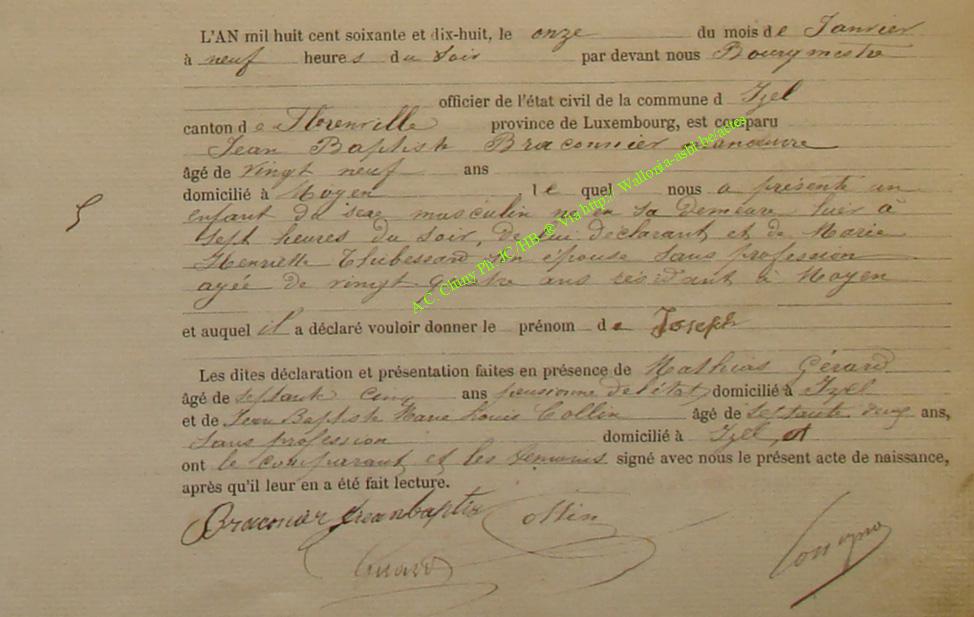 L'AN mil huit cent soixante et dix-huit, le onze du mois de Janvier
à neuf heures du Soir par devant nous Bourgmestre
officier de l'état civil de la commune d Izel
canton de Florenville province de Luxembourg, est comparu
Jean Baptiste Braconnier manoeuvre
âgé de vingt neuf ans
domicilié à Moyen, le quel nous a présenté un
5
enfant du sexe masculin né en sa demeure hier à
sept heures du soir, de lui déclarant et de Marie
Henriette Thibessard son épouse sans profession
agée de vingt quatre ans résidant à Moyen
et auquel il a déclaré vouloir donner le prénom de Joseph
Les dites déclaration et présentation faites en présence de Mathias Gérard
âgé de septante cinq ans pensionné de l'état domicilié à Izel
et de Jean Baptiste Marie Louis Collin âgé de septante deux ans,
sans profession domicilié à Izel, et
ont le comparant et les témoins signé avec nous le présent acte de naissance,
après qu'il leur en a été fait lecture.
Braconier jeanbaptis Collin
Gérard
A.C. Chiny Ph JC/HB @ Via http://Wallonia-asbl.be/actea